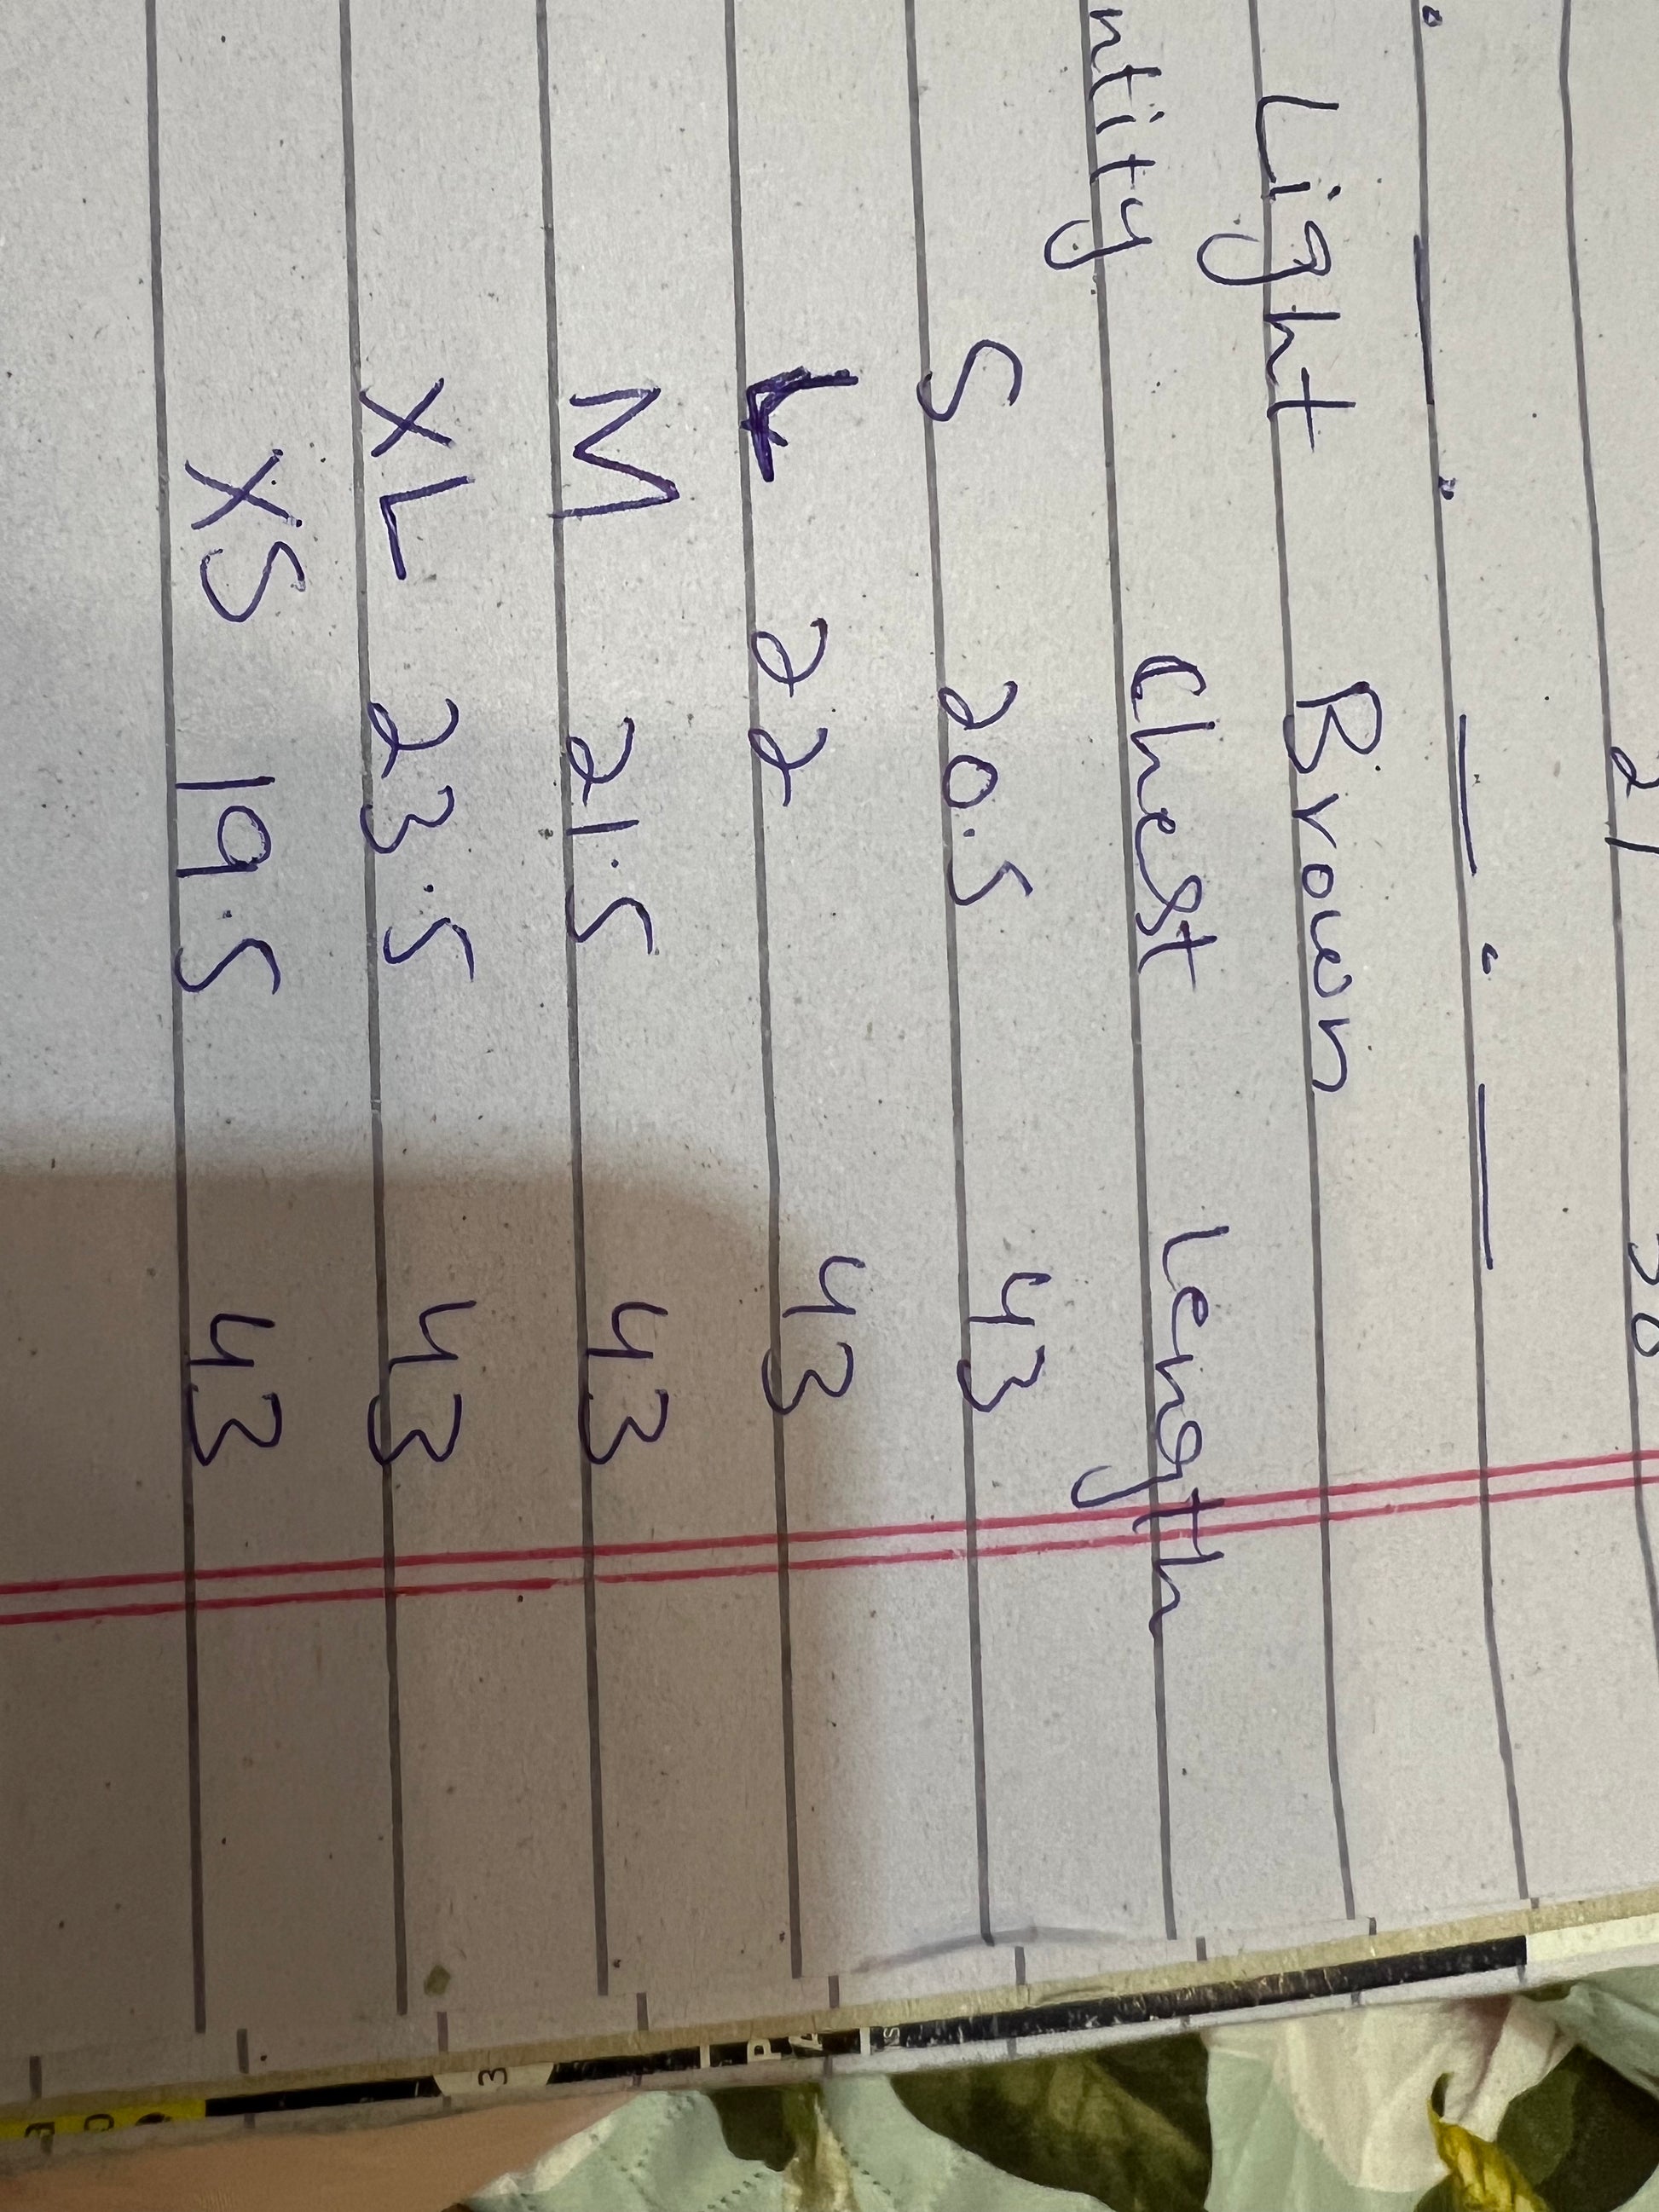 21 36
Light Brown
ntity Chest Length
S 20.5 43
L 22 43
M 21.5 43
XL 23.5 43
XS 19.5 43